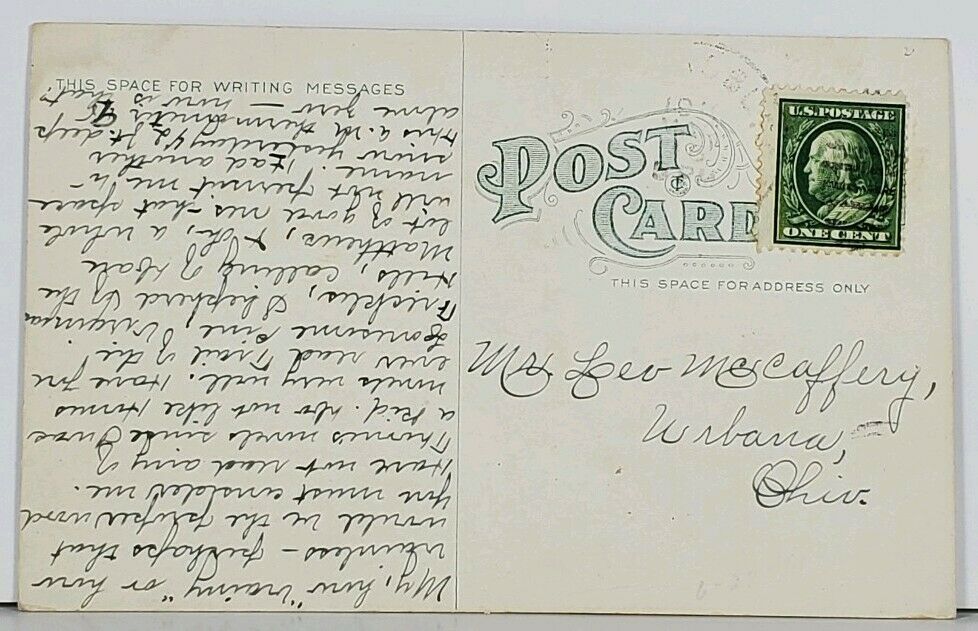 THIS SPACE FOR WRITING MESSAGES
My, how "brainy" or how
brainless – perhaps that
would be the proper word
you must consider me.
Have not read any of
novels since I was
a kid. Do not like
novels very well. Have you
ever read Trail of the
Lonesome Pine, Virginian
Freckles, Shepherd of the
Hills, Calling of Dan
Matthews, & oh, a whole
lot of good ones – that space
will not permit me to
name. Had another
snow yesterday ft. deep
this a.m. thermometer
above zero – how is
that?
POST CARD
U.S. POSTAGE
ONE CENT
THIS SPACE FOR ADDRESS ONLY
Mr. Leo McCaffery,
Urbana,
Ohio.